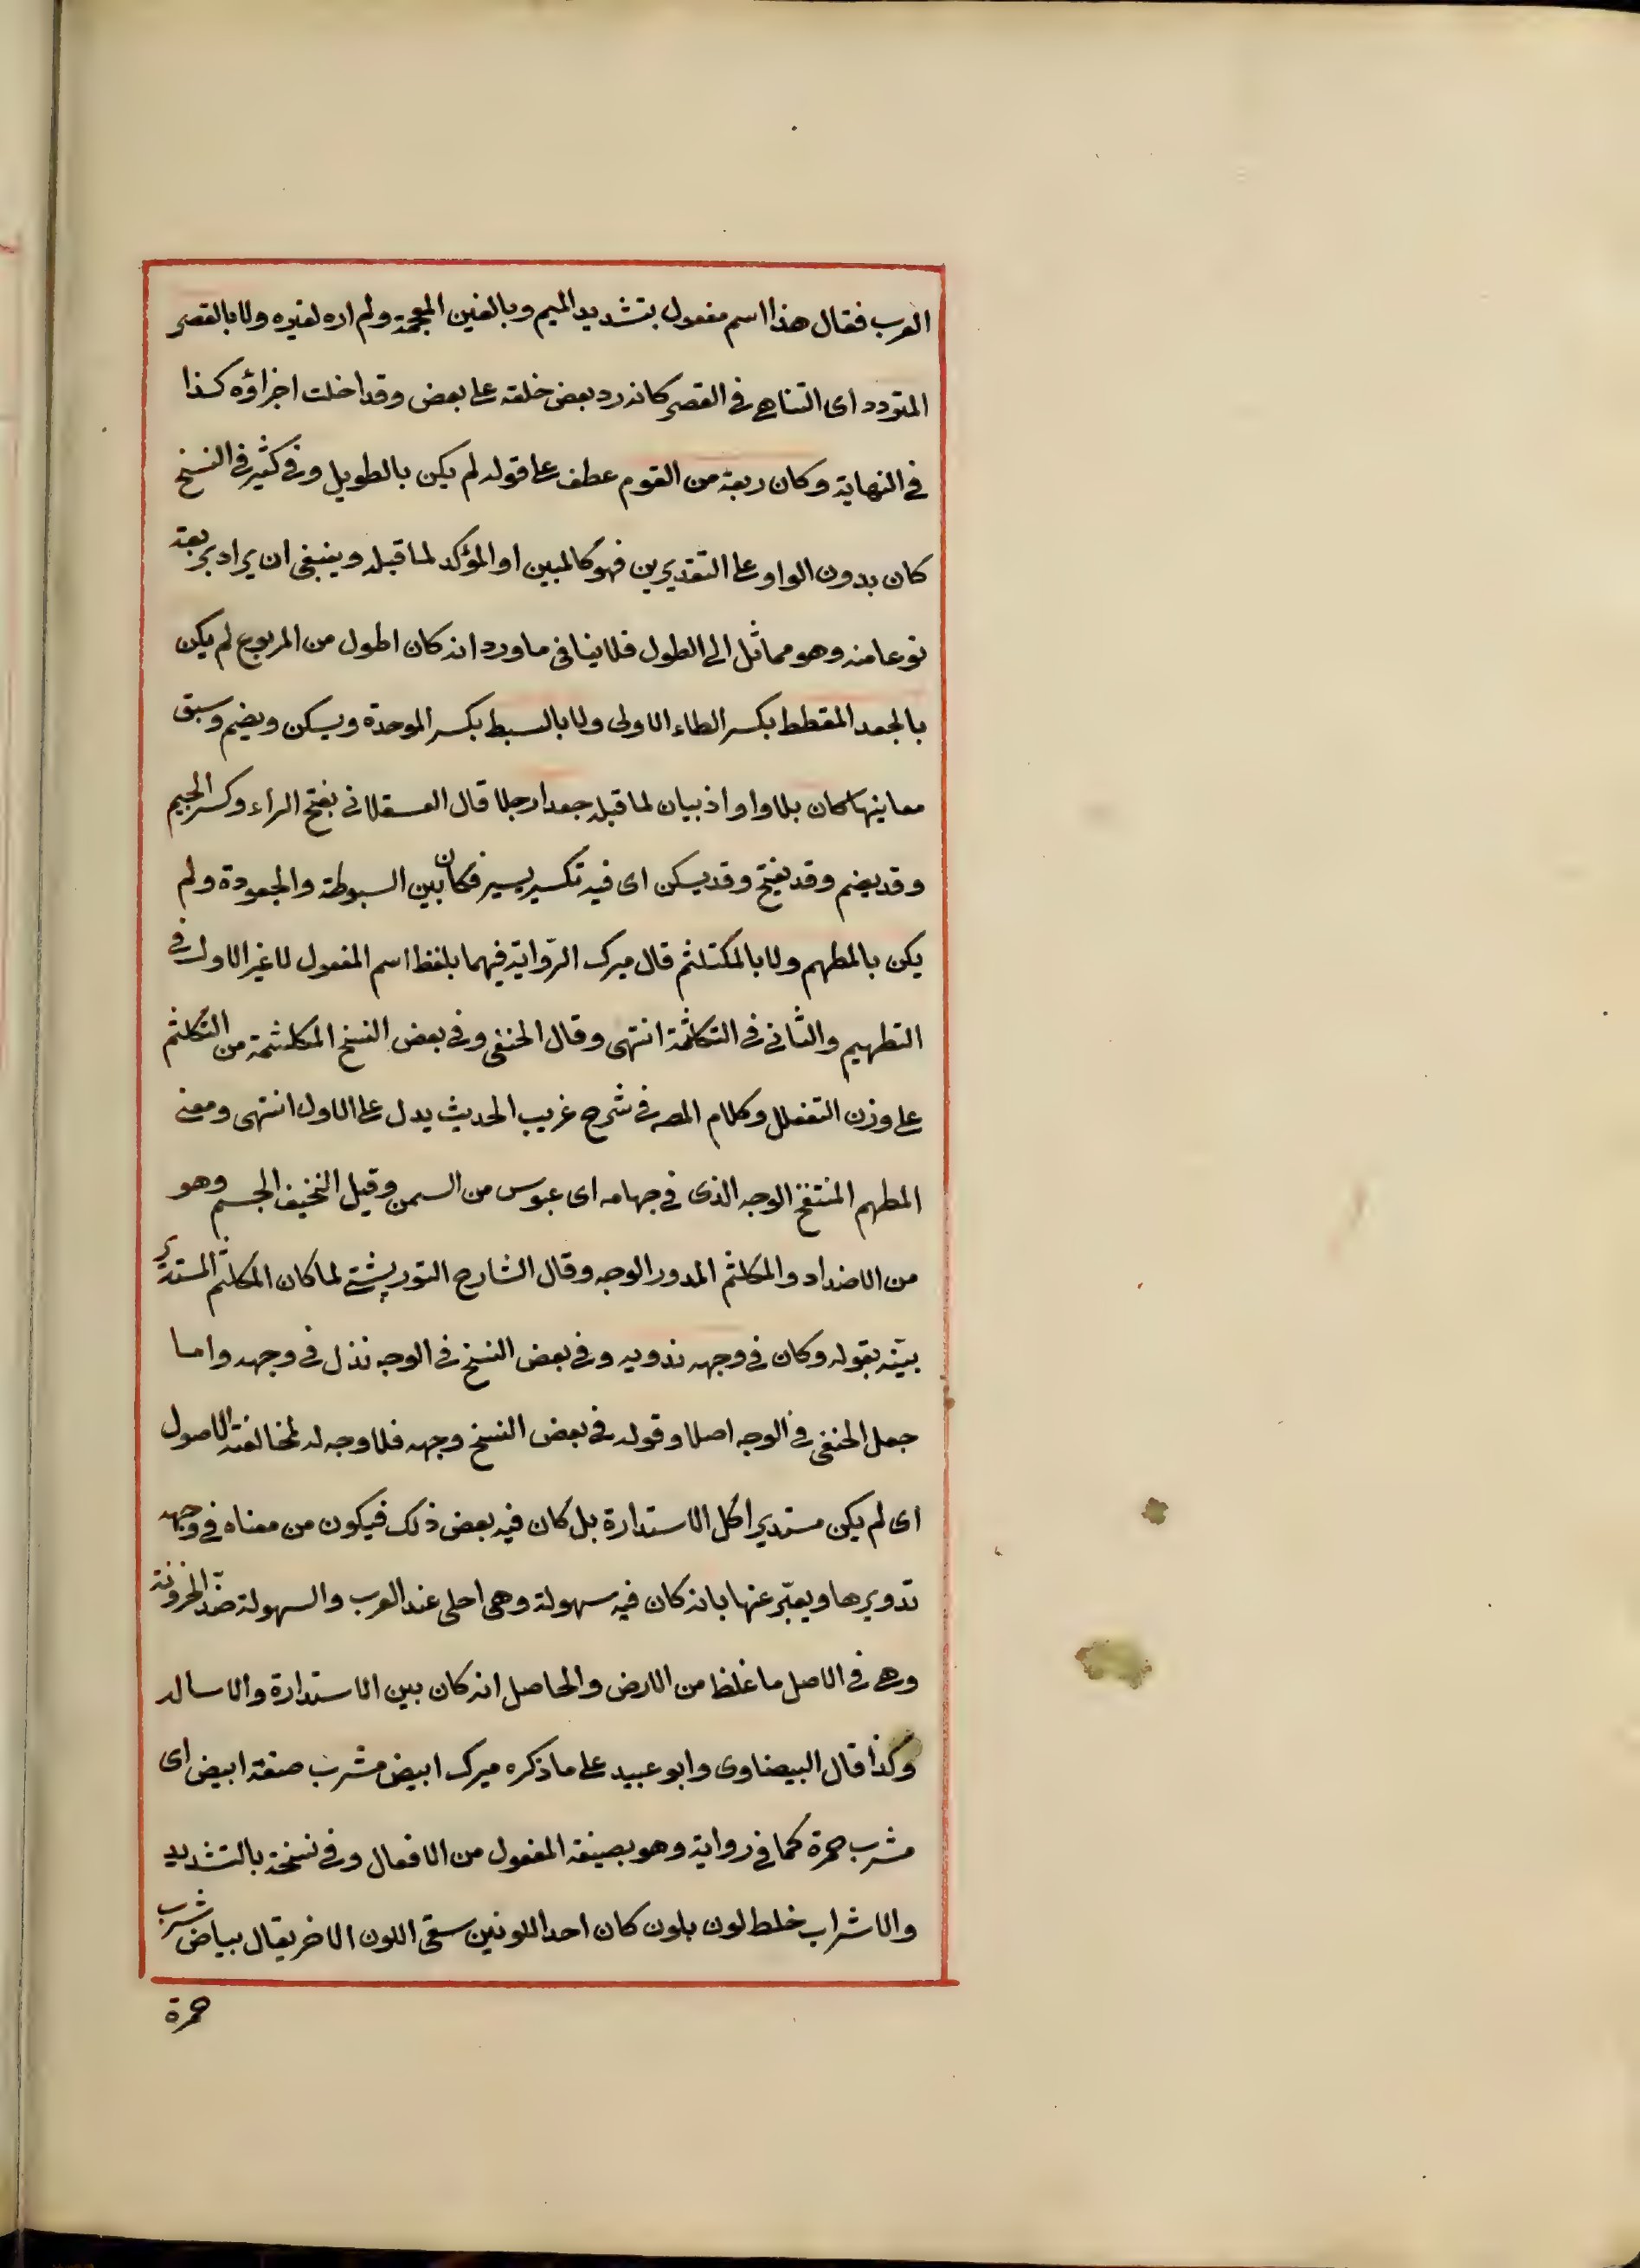 العرب فقال هذا اسم مفعول بتشديد الميم وبالغين المعجمة ولم اره لغيره ولا بالقصر
المتودد اى التناهى فى القصر كانه رد بعض خلقه على بعض وقداخلت اجزاؤه كذا
فى النهاية وكان ربعة من القوم عطف على قوله لم يكن بالطويل وفى كثير فى النسخ
كان بدون الواو على التقديرين فهو كالمبين او المؤكد لما قبله وينبغى ان يراد بربعة
نوعا منه وهو مماثل الى الطول فلا ينافى ما ورد انه كان اطول من المربوع لم يكن
بالجعد المقطط بكسر الطاء الاولى ولا بالسبط بكسر الموحدة ويسكن ويضم وسبق
معاينها كان بلا واو اذ بيان لما قبله جعدا رجلا قال العسقلانى بفتح الراء وكسر الجيم
وقد يضم وقد يفتح وقد يسكن اى فيه تكسر يسير فكان بين السبوطة والجعودة ولم
يكن بالمطهم ولا بالمكتلثم قال ميرك الرواية فيهما بلفظ اسم المفعول لا غير الاول فى
التطهيم والثانى فى التكلثمة انتهى وقال الحنفى وفى بعض النسخ المكلثمة من التكلثم
على وزن التفعلل وكلام المصر فى شرح غريب الحديث يدل على الاول انتهى ومعنى
المطهم المنتفخ الوجه الذى فى جهامه اى عبوس من السمن وقيل النخيف الجسم وهو
من الاضداد والمكلثم المدور الوجه وقال الشارح التوربشتى لما كان المكلثم المستدير
بيّنه بقوله وكان فى وجهه تدوير وفى بعض النسخ فى الوجه نذل فى وجهه واما
جعل الحنفى فى الوجه اصلا وقوله فى بعض النسخ وجهه فلا وجه له لمخالفته الاصول
اى لم يكن مستديرا كل الاستدارة بل كان فيه بعض ذلك فيكون من معناه فى وجهه
تدويرها ويعبّر عنها بانه كان فيه سهولة وهى احلى عند العرب والسهولة ضدّ الحزونة
وهى فى الاصل ما غلظ من الارض والحاصل انه كان بين الاستدارة والاساله
وكذا قال البيضاوى وابو عبيد على ما ذكره ميرك ابيض مشرب صفة ابيض اى
مشرب حمرة كما فى رواية وهو بصيغة المفعول من الافعال وفى نسخة بالتشديد
والاشراب خلط لون بلون كان احد اللونين سقى اللون الاخر يقال بياض شرب
حمرة